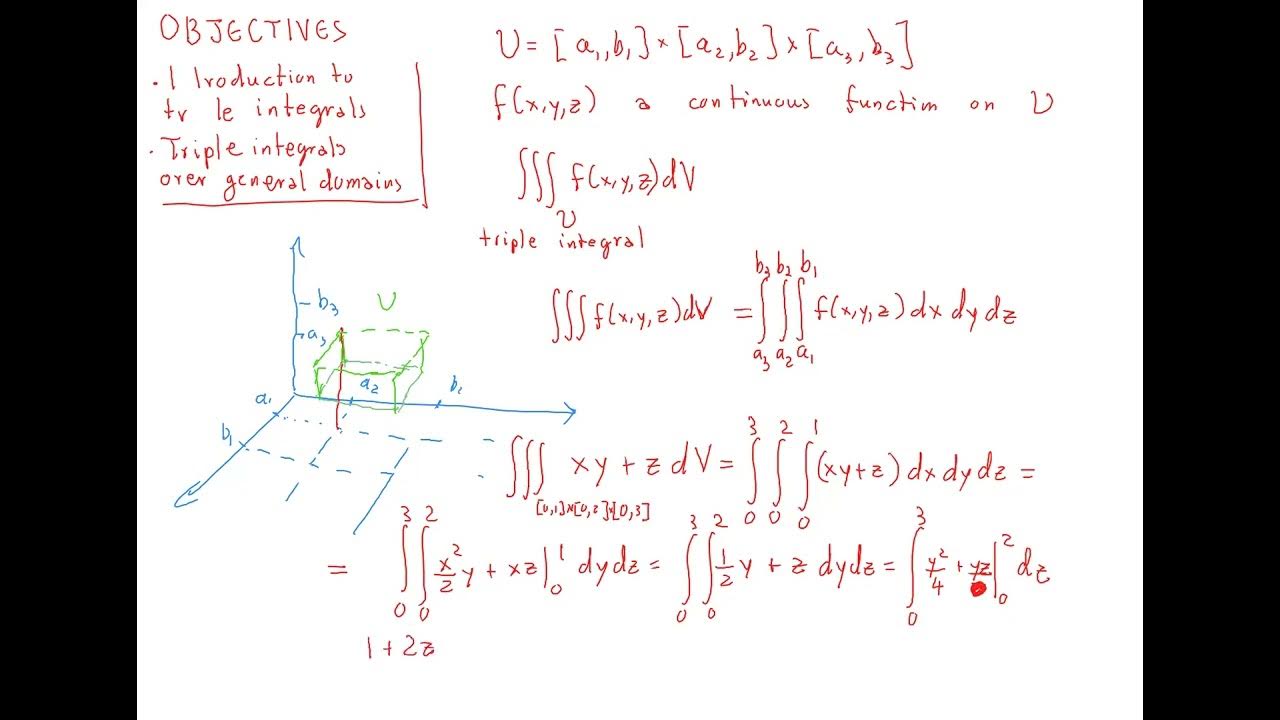 OBJECTIVES
· I lroduction to
tr le integrals
· Triple integrals
over general domains
U = [a₁,b₁]×[a₂,b₂]×[a₃,b₃]
f(x,y,z) a continuous function on U
∭_U f(x,y,z)dV
triple integral
∭f(x,y,z)dV = ∫_{a₃}^{b₃}∫_{a₂}^{b₂}∫_{a₁}^{b₁} f(x,y,z) dx dy dz
b₃
U
a₃
a₂
a₁
b₁
∭_{[0,1]×[0,2]×[0,3]} xy+z dV = ∫_0^3∫_0^2∫_0^1 (xy+z) dx dy dz =
= ∫_0^3∫_0^2 x²/2 y + xz |_0^1 dy dz = ∫_0^3∫_0^2 1/2 y + z dy dz = ∫_0^3 y²/4 + yz |_0^2 dz
1+2z